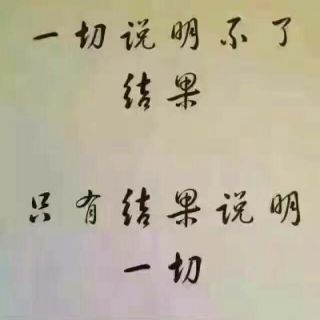 一切说明不了
结果
只有结果说明
一切